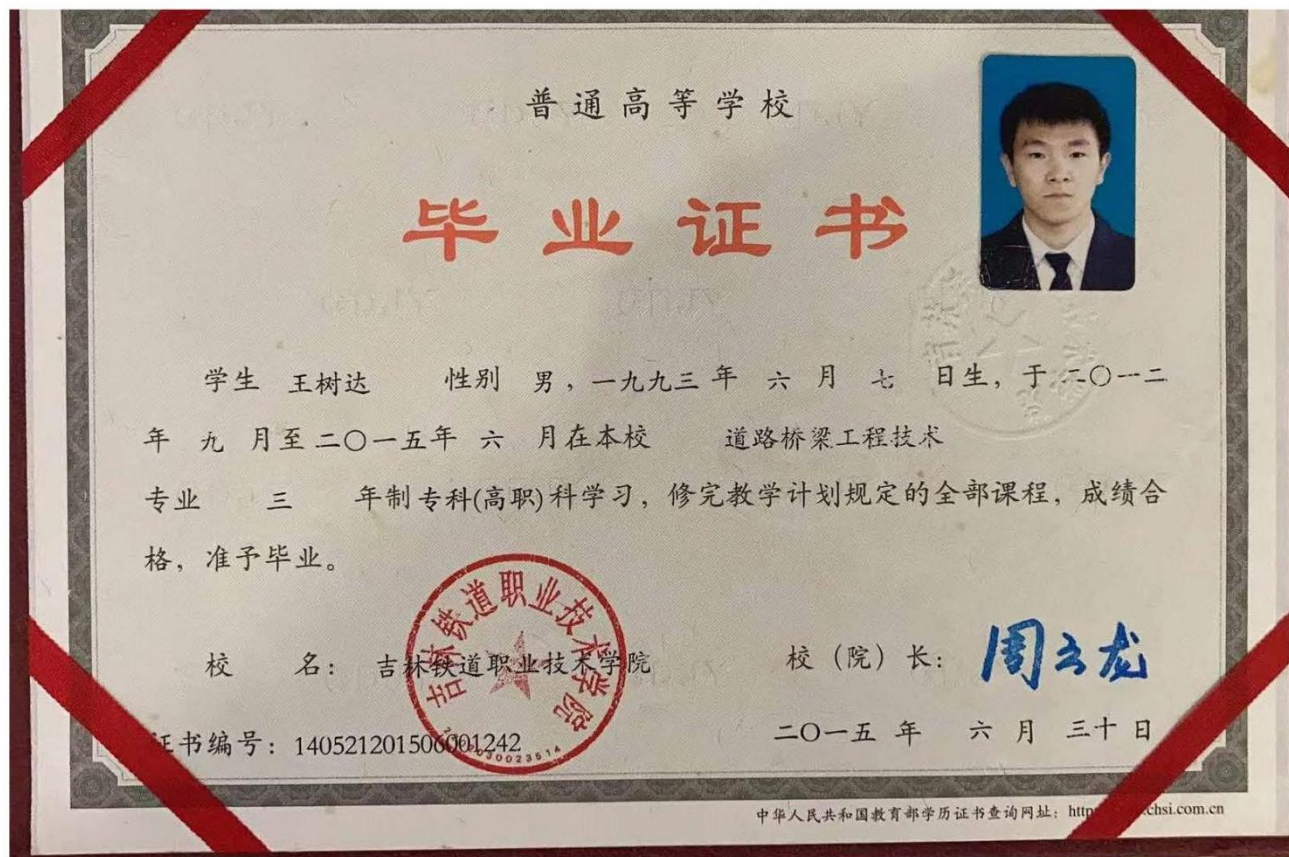 普通高等学校
毕业证书
学生 王树达 性别 男，一九九三 年 六 月 七 日生，于 二〇一二
年 九 月至 二〇一五年 六 月在本校 道路桥梁工程技术
专业 三 年制 专科(高职) 科学习，修完教学计划规定的全部课程，成绩合
格，准予毕业。
吉林铁道职业技术学院
校 名： 吉林铁道职业技术学院
校（院）长： 周云龙
证书编号：140521201506001242
二〇一五 年 六 月 三十 日
中华人民共和国教育部学历证书查询网址：http chsi.com.cn